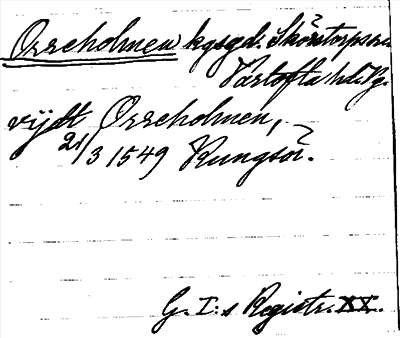 Orreholmen kgsgd. Sköntorps sn.
Vartofta hd. Vg.
vijdt Orreholmen,
21/3 1549 Kungsör.
G. I:s Registr. XX.